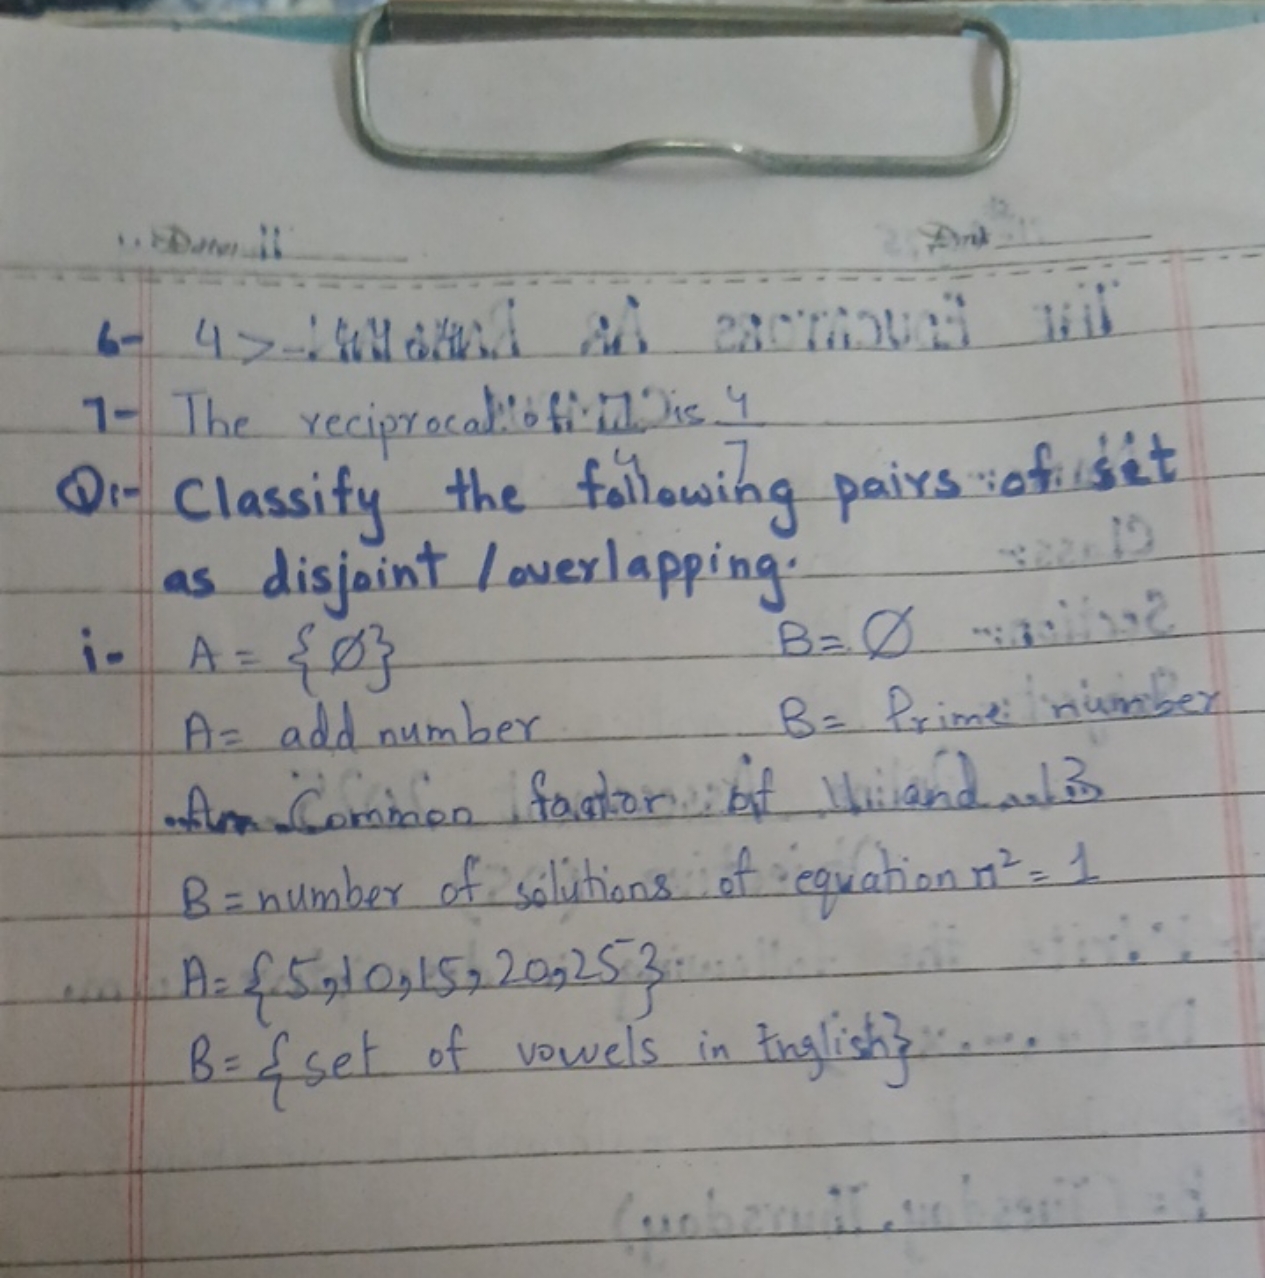 6- 4 >
7- The reciprocal of 7/4 is 4/7
Q:- Classify the following pairs of set
as disjoint / overlapping.
i- A = {Ø} B = Ø
A = add number B = Prime number
A = Common factor of 11 and 13
B = number of solutions of equation n² = 1
A = {5,10,15,20,25}
B = {set of vowels in English}